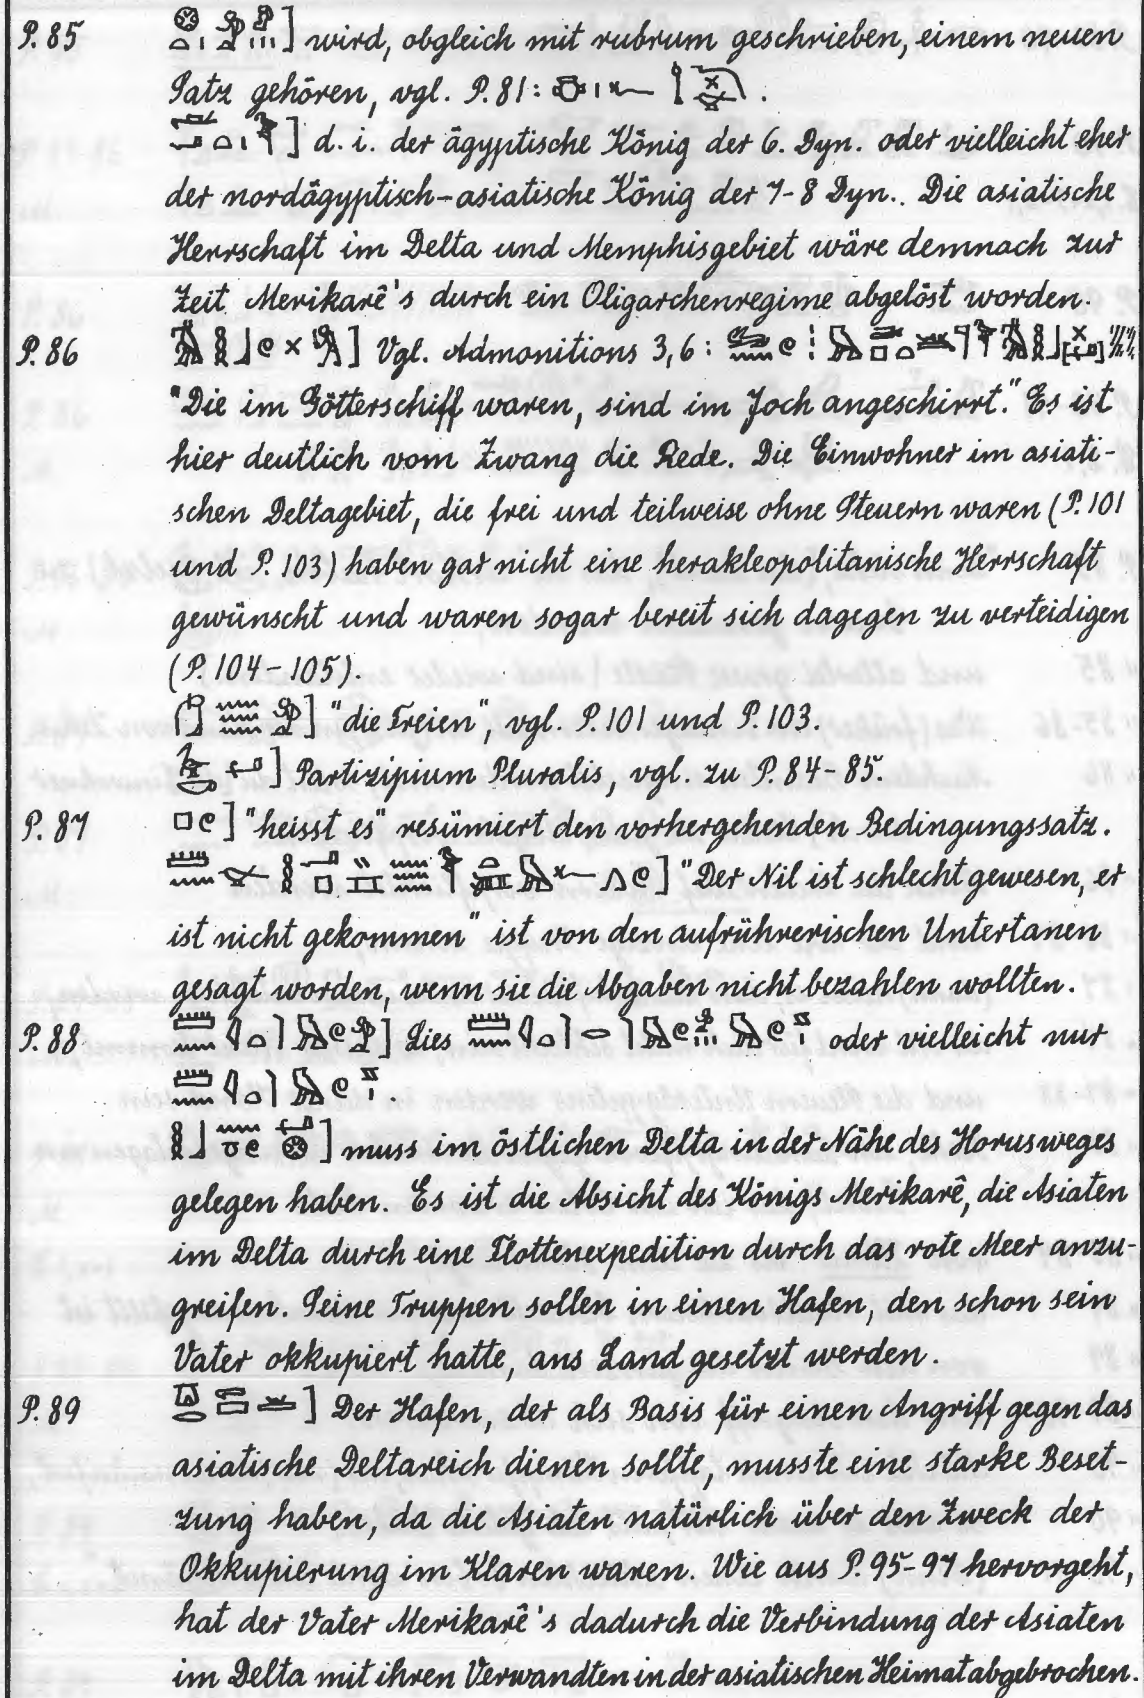 P. 85 ] wird, obgleich mit rubrum geschrieben, einem neuen
Satz gehören, vgl. P. 81: .
] d. i. der ägyptische König der 6. Dyn. oder vielleicht eher
der nordägyptisch-asiatische König der 7-8 Dyn.. Die asiatische
Herrschaft im Delta und Memphisgebiet wäre demnach zur
Zeit Merikarê's durch ein Oligarchenregime abgelöst worden.
P. 86 ] Vgl. Admonitions 3,6:
"Die im Götterschiff waren, sind im Joch angeschirrt." Es ist
hier deutlich vom Zwang die Rede. Die Einwohner im asiati-
schen Deltagebiet, die frei und teilweise ohne Steuern waren (P. 101
und P. 103) haben gar nicht eine herakleopolitanische Herrschaft
gewünscht und waren sogar bereit sich dagegen zu verteidigen
(P. 104-105).
] "die Freien", vgl. P. 101 und P. 103.
] Partizipium Pluralis, vgl. zu P. 84-85.
P. 87 ] "heisst es" resümiert den vorhergehenden Bedingungssatz.
] "Der Nil ist schlecht gewesen, er
ist nicht gekommen" ist von den aufrührerischen Untertanen
gesagt worden, wenn sie die Abgaben nicht bezahlen wollten.
P. 88 ] Lies oder vielleicht nur
.
] muss im östlichen Delta in der Nähe des Horusweges
gelegen haben. Es ist die Absicht des Königs Merikarê, die Asiaten
im Delta durch eine Flottenexpedition durch das rote Meer anzu-
greifen. Seine Truppen sollen in einen Hafen, den schon sein
Vater okkupiert hatte, ans Land gesetzt werden.
P. 89 ] Der Hafen, der als Basis für einen Angriff gegen das
asiatische Deltareich dienen sollte, musste eine starke Beset-
zung haben, da die Asiaten natürlich über den Zweck der
Okkupierung im Klaren waren. Wie aus P. 95-97 hervorgeht,
hat der Vater Merikarê's dadurch die Verbindung der Asiaten
im Delta mit ihren Verwandten in der asiatischen Heimat abgebrochen.